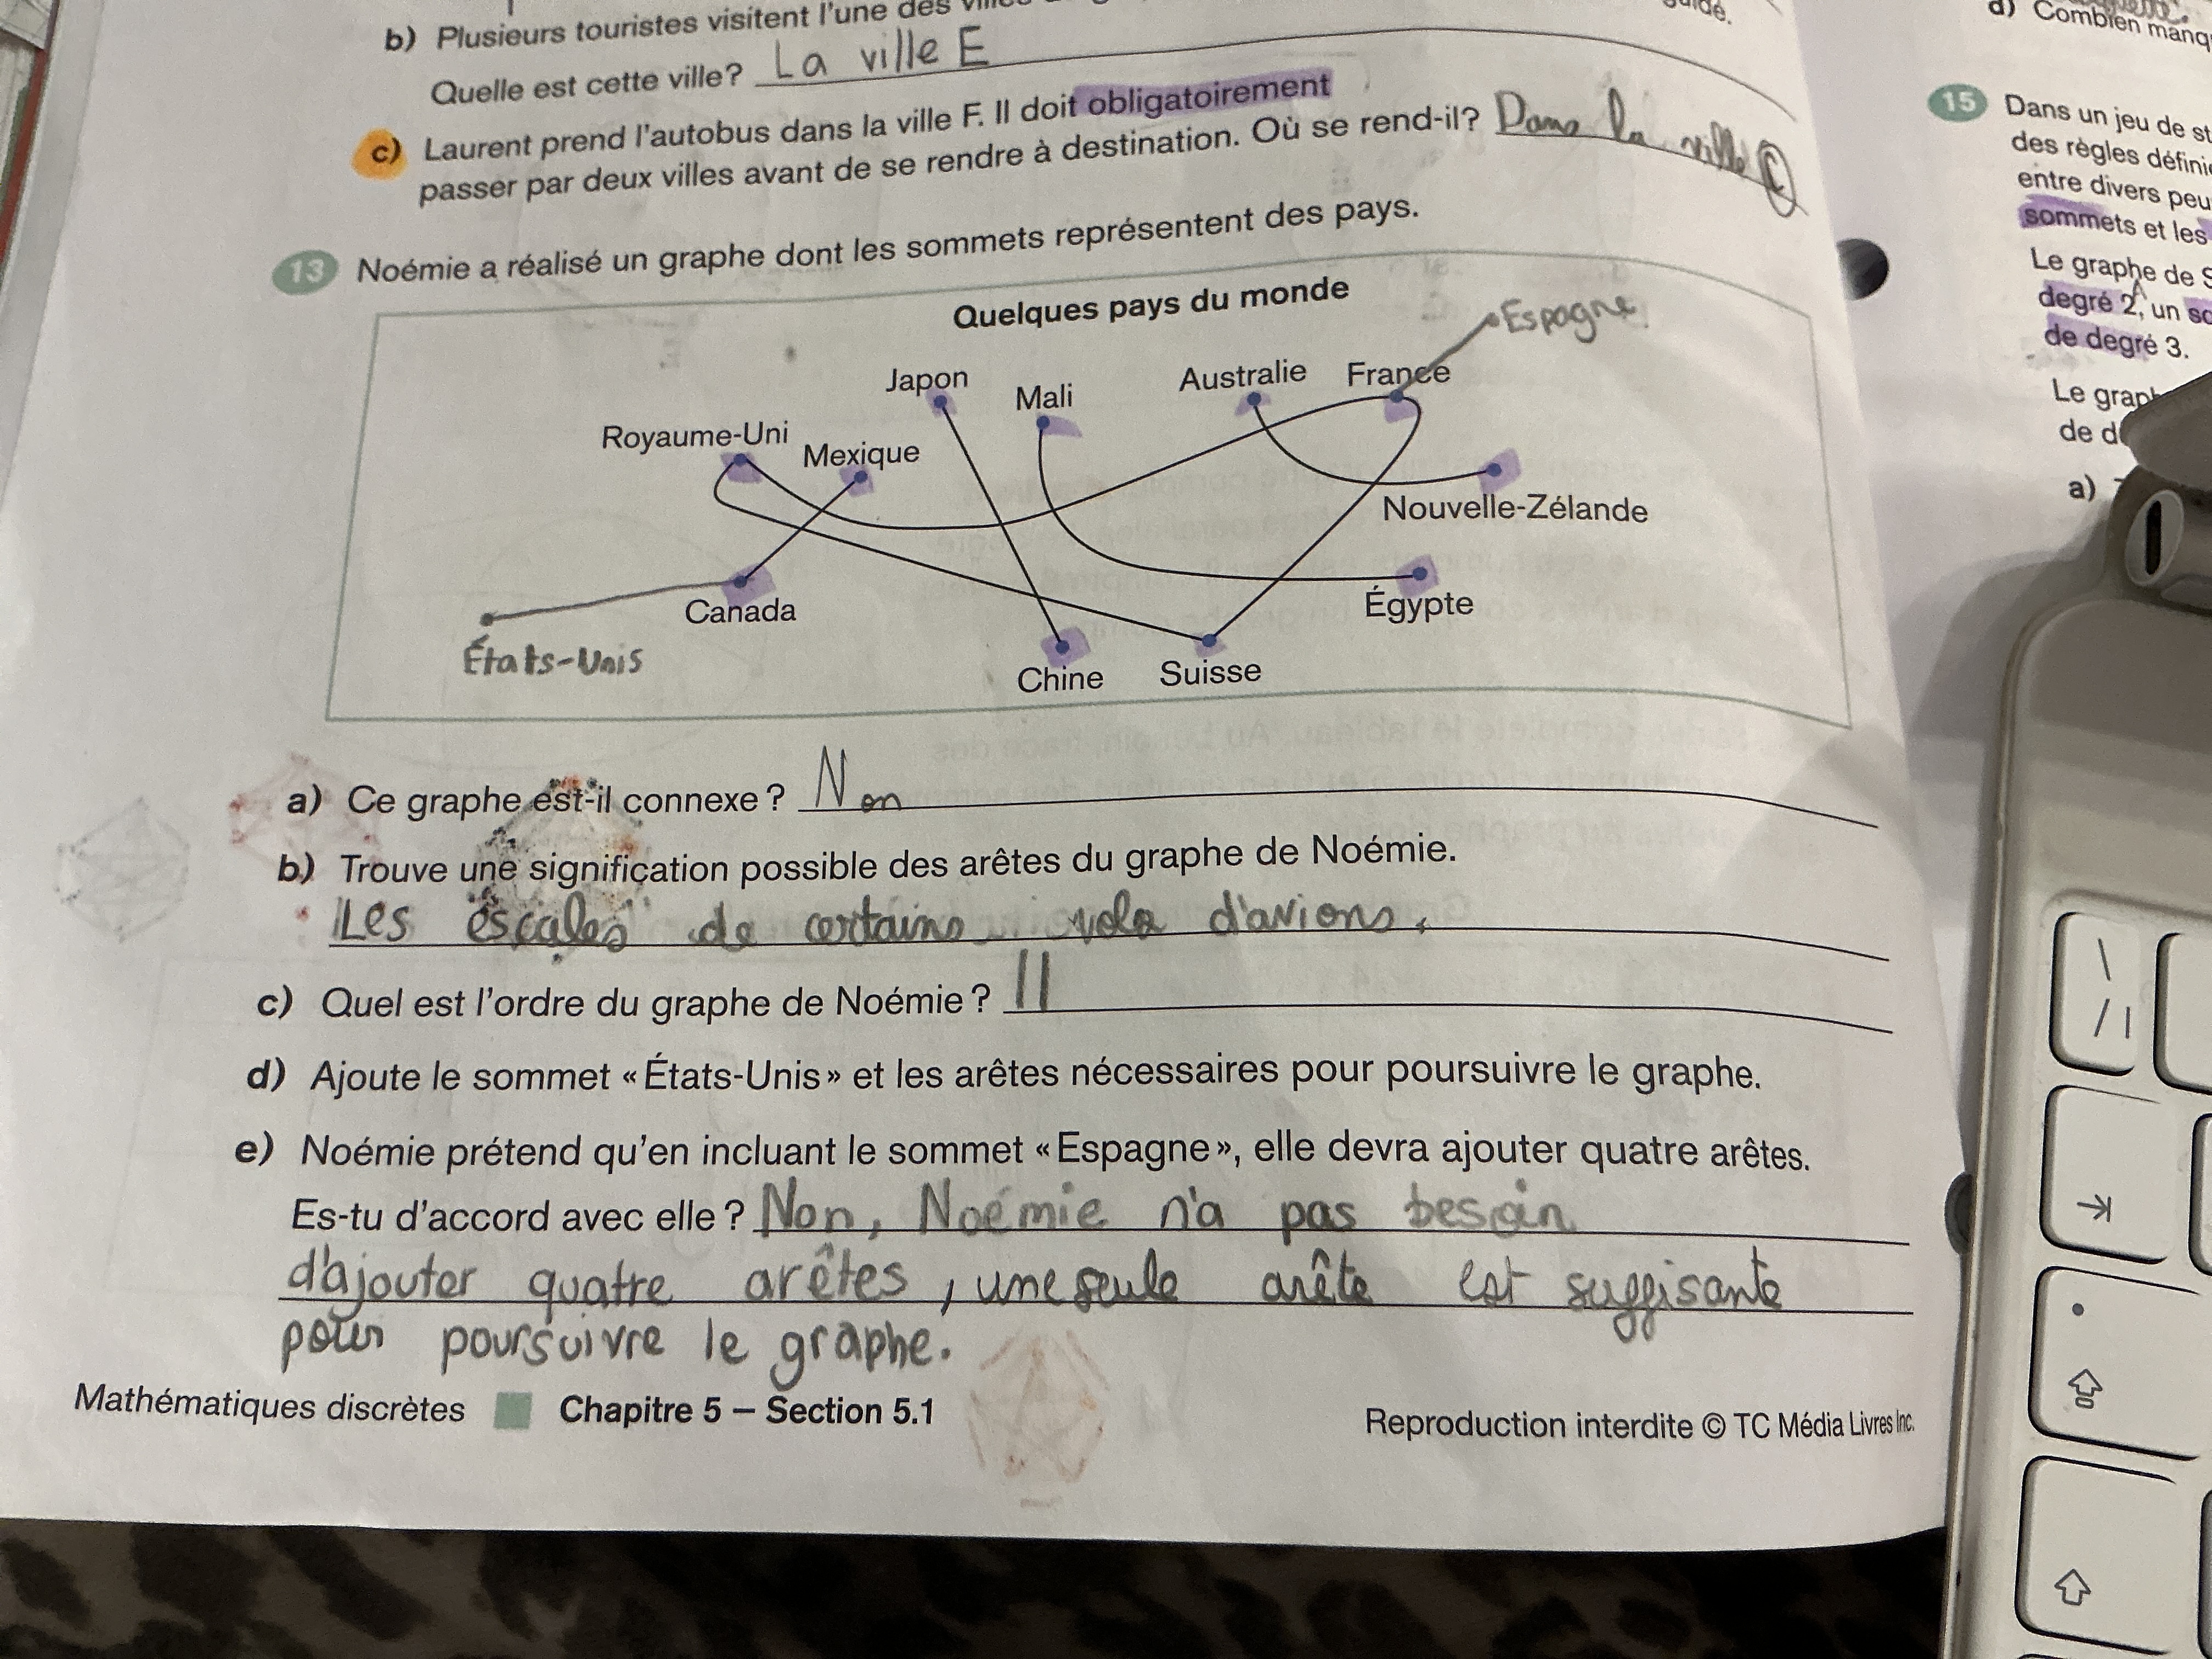 b) Plusieurs touristes visitent l'une des
Quelle est cette ville? La ville E
c) Laurent prend l'autobus dans la ville F. Il doit obligatoirement
passer par deux villes avant de se rendre à destination. Où se rend-il? Dans la ville C
13 Noémie a réalisé un graphe dont les sommets représentent des pays.
Quelques pays du monde
Espagne
Japon
Mali
Australie
France
Royaume-Uni
Mexique
Nouvelle-Zélande
Canada
Égypte
États-Unis
Chine
Suisse
a) Ce graphe est-il connexe? Non
b) Trouve une signification possible des arêtes du graphe de Noémie.
Les escales de certains vols d'avions.
c) Quel est l'ordre du graphe de Noémie? 11
d) Ajoute le sommet «États-Unis» et les arêtes nécessaires pour poursuivre le graphe.
e) Noémie prétend qu'en incluant le sommet «Espagne», elle devra ajouter quatre arêtes.
Es-tu d'accord avec elle? Non, Noémie n'a pas besoin
d'ajouter quatre arêtes, une seule arête est suffisante
pour poursuivre le graphe.
Mathématiques discrètes Chapitre 5 – Section 5.1
Reproduction interdite © TC Média Livres Inc.
d) Combien
15 Dans un jeu de
des règles
entre divers
sommets et les
Le graphe de
degré 2, un
de degré 3.
Le
de
a)
\
/ |